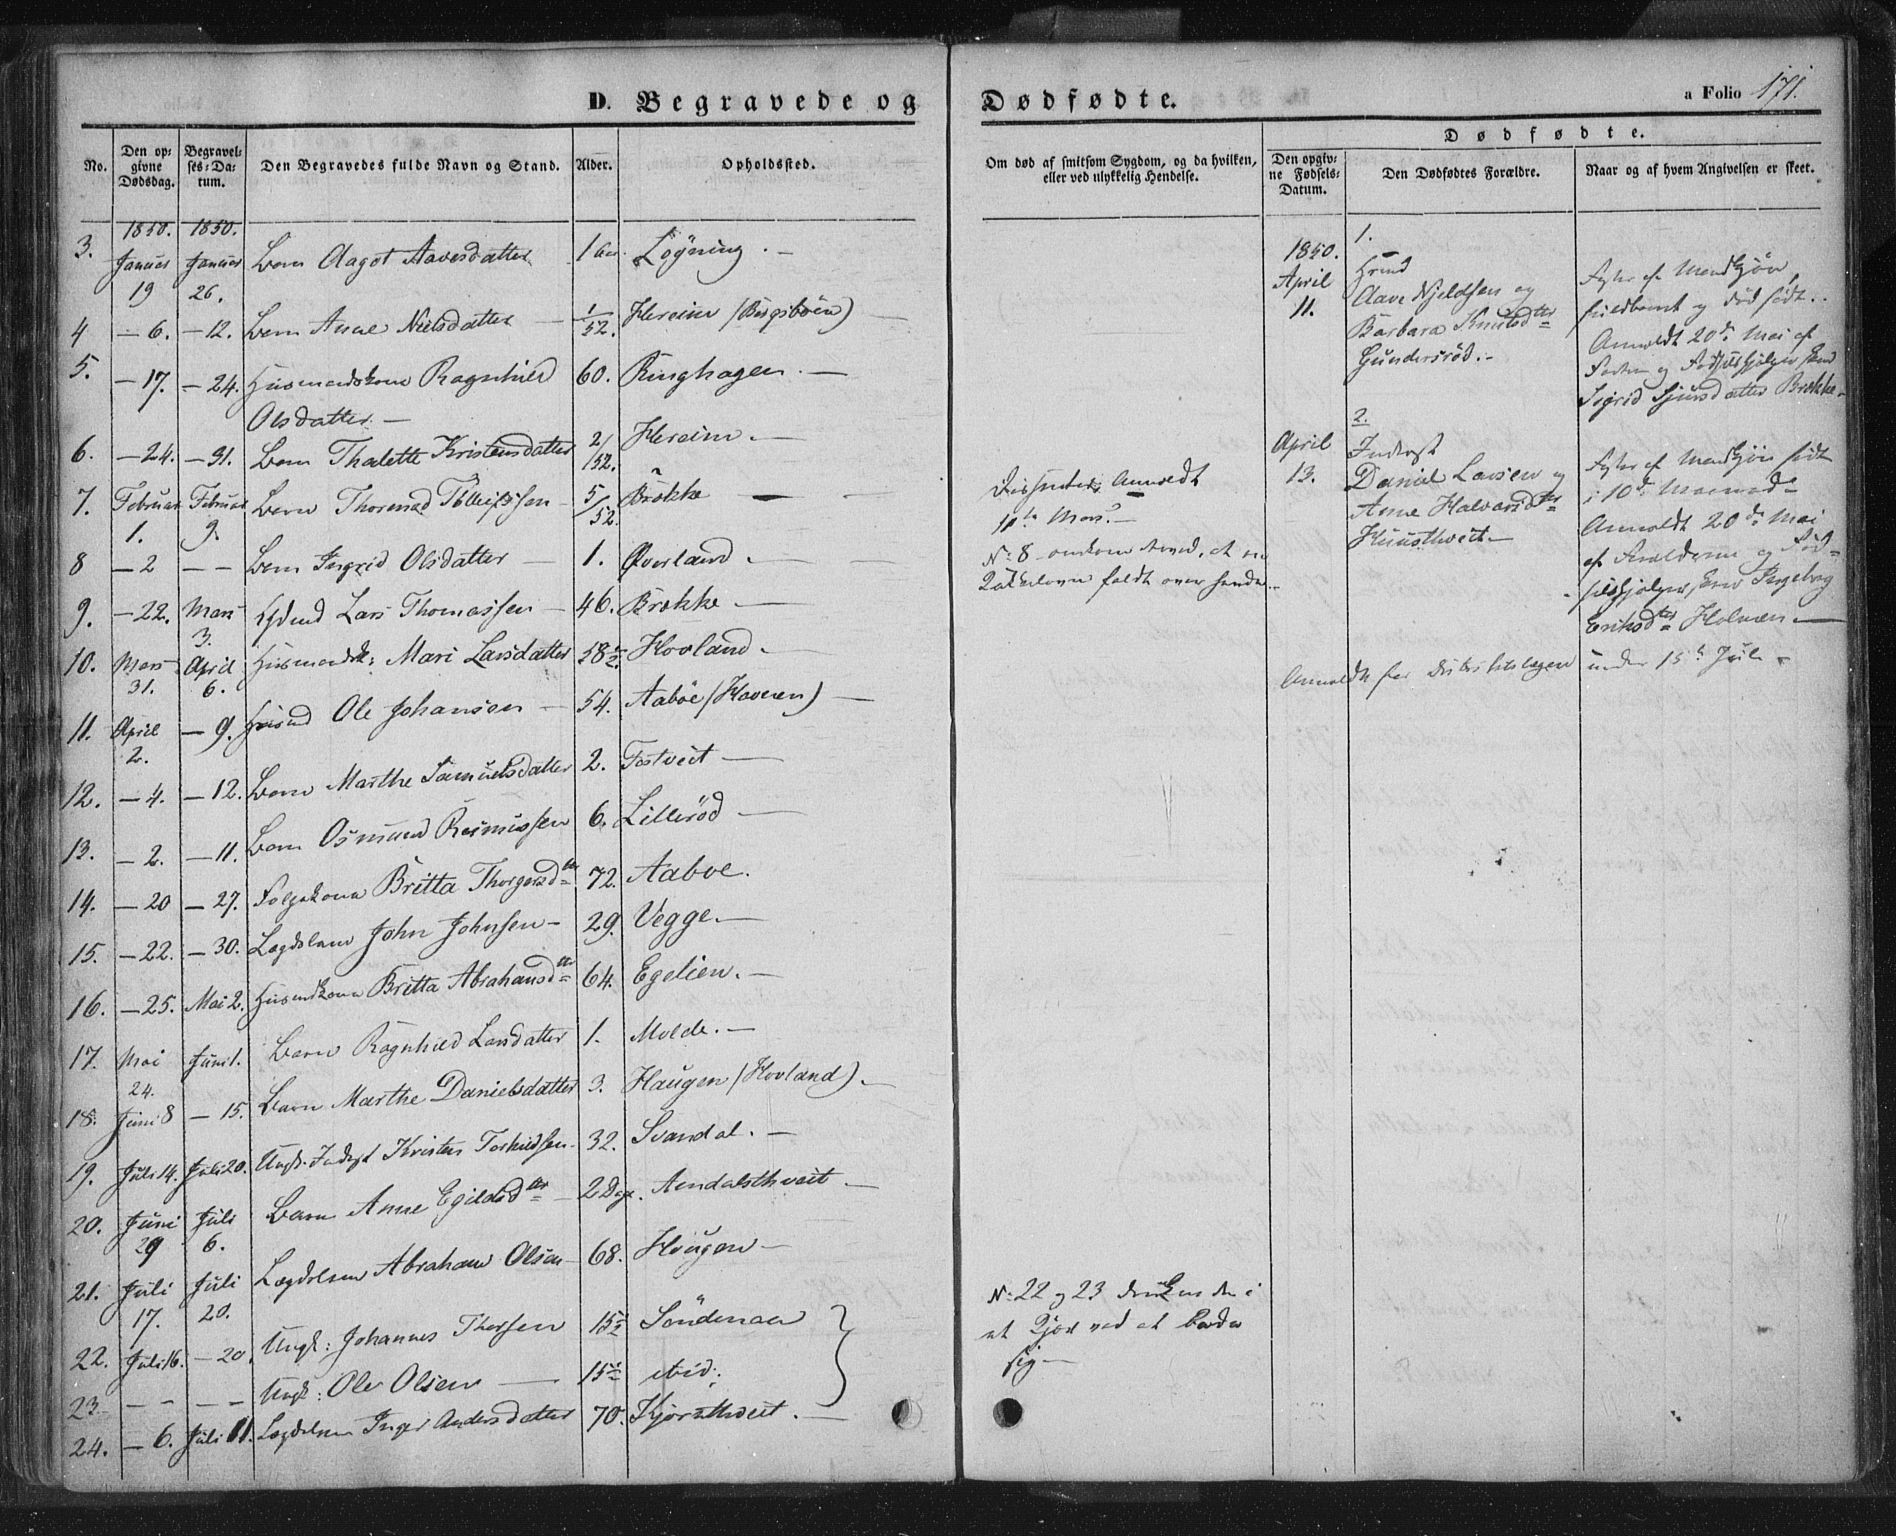 D. Begravede og Dødfødte.
a Folio 171.
No.
Den op-
givne
Dødsdag.
Begravel-
ses-Da-
tum.
Den Begravedes fulde Navn og Stand.
Alder.
Opholdssted.
Om død af smitsom Sygdom, og da hvilken,
eller ved ulykkelig Hendelse.
Dødfødte.
Den opgiv-
ne Fødsels-
Datum.
Den Dødfødtes Forældre.
Naar og af hvem Angivelsen er skeet.
1850. 1850.
3. Januar 19 Januar 26. Barn Aagot Aavesdatter 1 Løgning.
4 - 6. - 12. Barn Anne Nielsdatter 1/52. Hereim
5. - 17. - 24. Husmandskone Ragnhild 60. Ringhagen.
Olsdatter
6. - 24. - 31. Barn Thalette Kristensdatter 2/52. Hereim.
7. Februar 1. Februar 9. Barn Thormod Tolleifssen 5/52. Brokke
8 - 2 - - Barn Ingrid Olsdatter 1. Øverland.
9. - 22. Mars 3. Lars Thomassen 46. Brekke
10. Mars 31. April 6. Husmandsk: Mari Larsdatter 58 1/2. Hovland.
11. April 2. - 9. Ole Johansen 54. Aaboe (Haveren)
12. - 4. - 12. Barn Marthe Samuelsdatter 2. Tostveit
13. - 2. - 11. Barn Osmund Rasmussen 6. Lillerød
14. - 20 - 27. Folgekone Britta Thorgersdtr 72. Aaboe.
15. - 22. - 30. Lægdslem John Johnsen 29. Vegge.
16. - 25. Mai 2. Britta Abrahamsdtr 64. Egelien.
17. Mai 24. Juni 1. Barn Ragnhild Larsdatter 1. Molde.
18. Juni 8 - 15. Barn Marthe Danielsdatter 3. Haugen (Hovland).
19. Juli 14. Juli 20. Ungk. Inderst Kristen Torkildsen 32. Svandal.
20. Juni 29 Juli 6. Barn Anne Egildsdtr 2 Dage. Aendalsthveit
21. Juli 17. Juli 20. Lægdslem Abraham Olsen 68. Haugen
22. Juli 16. - 20. Ungk: Johannes Thorsen 15 1/2 Søndenaa
23. - - - - Ungk: Ole Olsen 15 ibid:
24. - 6. Juli 11. Lægdslem Inger Andersdatter 70. Kjørsthveit.
Anmeldt
10de Mars
No: 8 omkom ved, at en
Kakkelovn faldt over hende
No: 22 og 23 druknede i
et Kjær ved at bade
sig
1850.
April
11.
1.
Aave Kjeldsen og
Barbara Knudsdtr
Gundersrød.
og død født.
Anmeldt 20de Mai af
Faderen og
Sigrid Sjursdatter Brekke.
April
13.
2.
Inderst
Daniel Larsen og
Anne Halvorsdtr
født
i 10de Maaned
Anmeldt 20de Mai
af Forældrene og Fød-
selshjælperinde Ingeborg
Eriksdtr
Anmeldt for Distriktslægen under 15de Juli